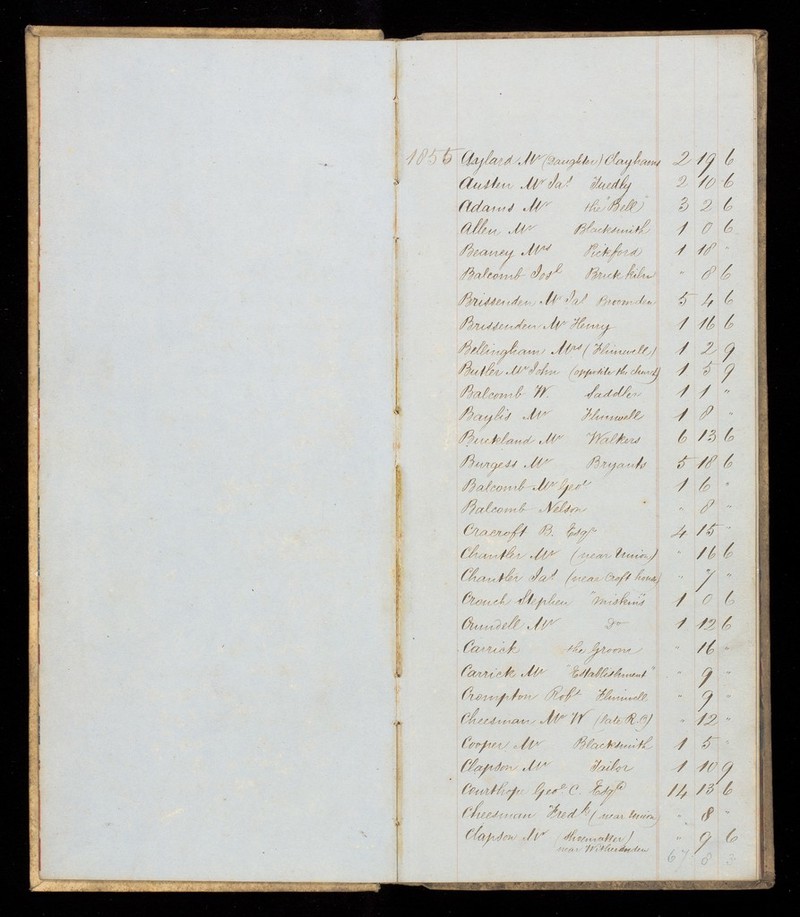 1855 Aylard Mr (Daughter) Claphams 2 19 6
Austen Mr Jas Tuedly 2 10 6
Adams Mr the "Bell" 3 2 6
Allen Mr Blacksmith 1 0 6
Beaney Mrs Pickford 1 18 "
Balcomb Josh Brick kiln " 8 6
Brissenden Mr Jas Broomden 5 4 6
Brissenden Mr Henry 1 16 6
Bellingham Mrs (Flimwell) 1 2 9
Butler Mr John (opposite the church) 1 5 9
Balcomb W. Saddler 1 1 "
Baylis Mr Flimwell 1 8 "
Buckland Mr Walkers 6 13 6
Burgess Mr Bryants 5 18 6
Balcomb Mr Geoe 1 6 "
Balcomb Nelson " 8 "
Cracroft B. Esqr 4 15 "
Chantler Mr (near Union) " 16 6
Chantler Jas (near Croft house) " 7 "
Crouch Stephen "Miskins" 1 0 6
Crundell Mr Do 1 12 6
Carrick the Groom " 16 "
Carrick Mr "Establishment" " 9 "
Crompton Robt Flimwell " 9 "
Cheesman Mr W (late R.C) " 12 "
Cooper Mr Blacksmith 1 5 "
Clapson Mr Tailor 1 10 9
Courthope Geoe C. Esqr 14 13 6
Cheesman Fredk (near Union) " 8 "
Clapson Mr (Shoemaker) " 9 6
near Witherenden
67 8 3